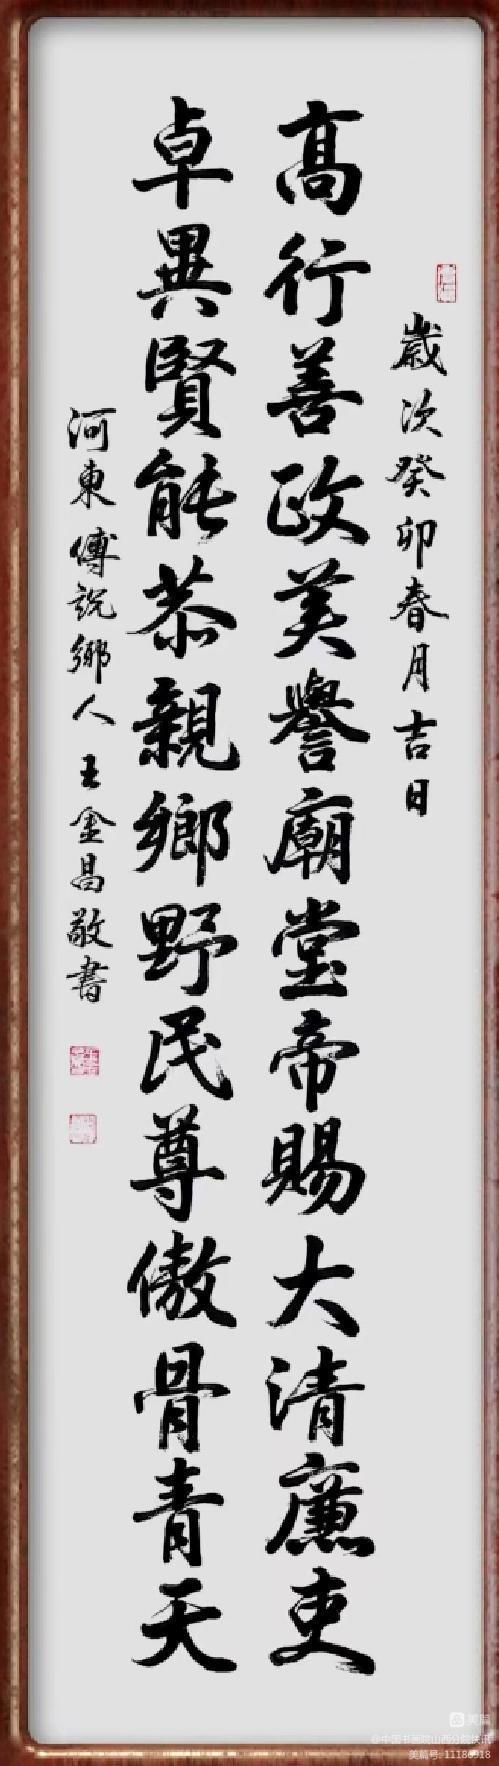 歲次癸卯春月吉日
高行善政美譽廟堂帝賜大清廉吏
卓異賢能恭親鄉野民尊傲骨青天
河東傅説鄉人王金昌敬書
美篇
@中国书画院山西分院快讯
美篇号:11186918